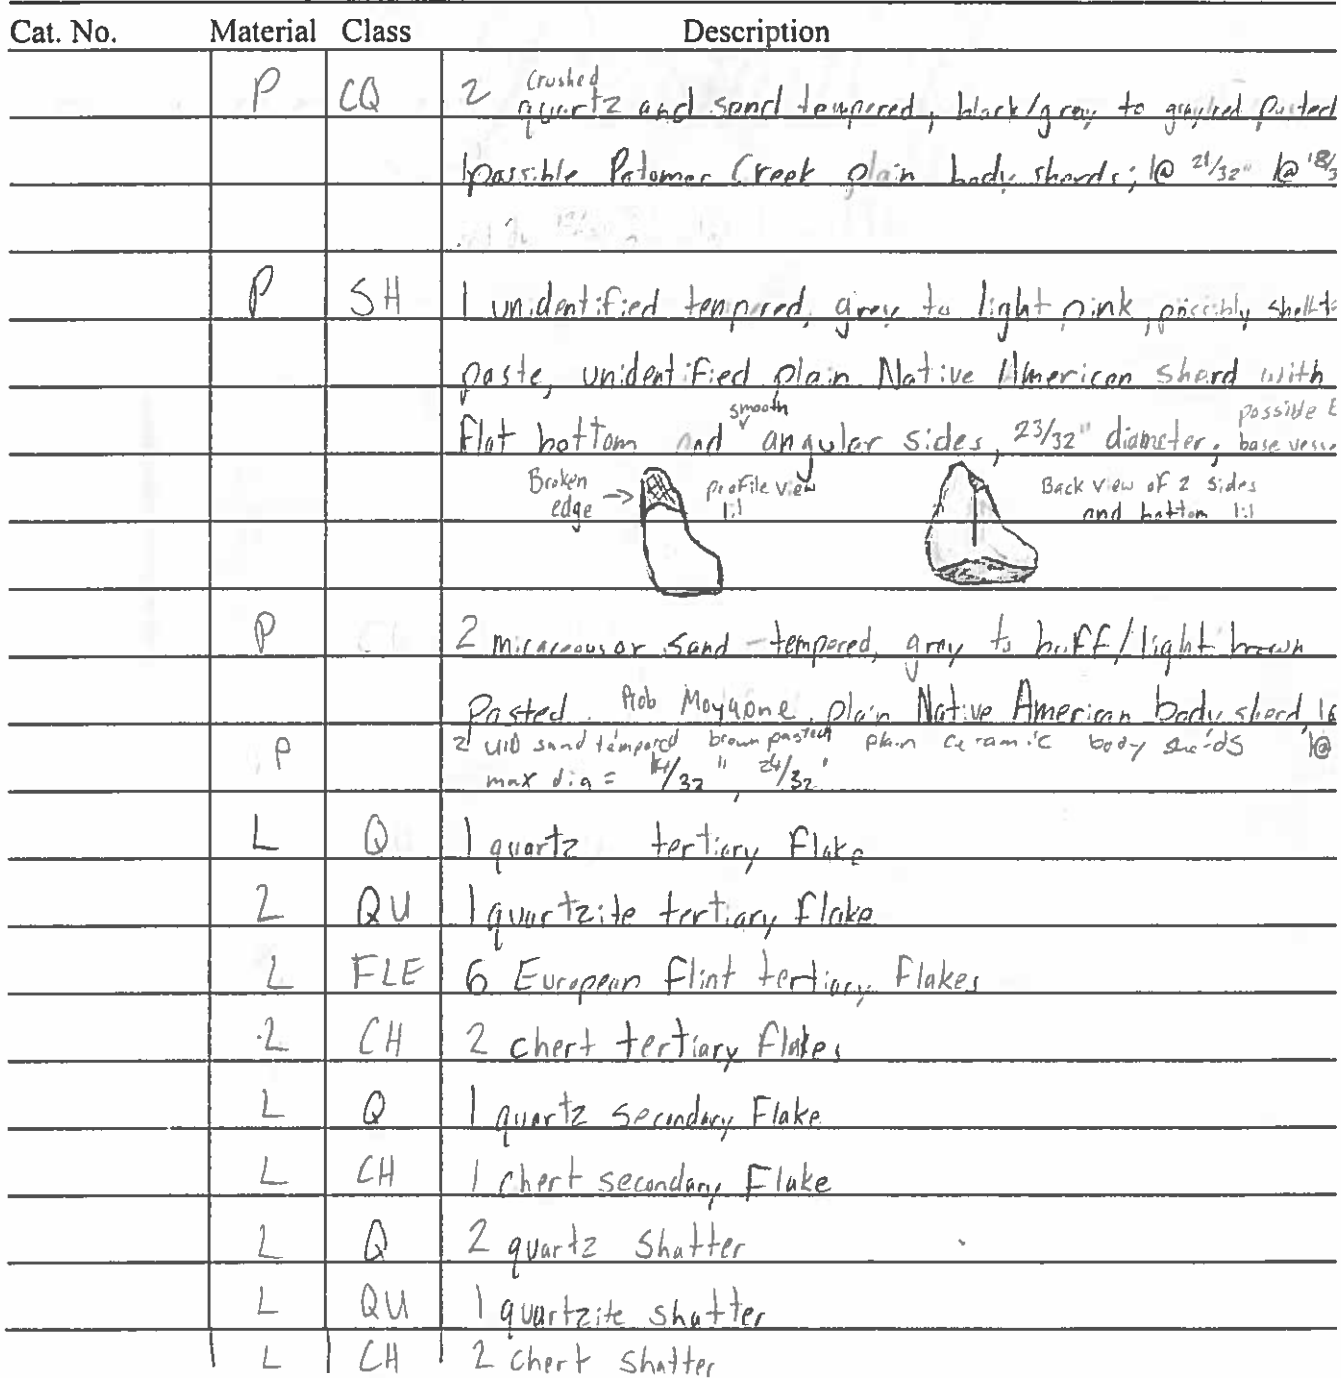 Cat. No. Material Class Description
P CQ 2 crushed quartz and sand tempered, black/gray to gray/red pasted
possible Potomac Creek plain body shards; 1@ 21/32" 1@ 18/3
P SH 1 unidentified tempered, grey to light pink, possibly shell t
paste, unidentified plain Native American shard with
flat bottom and smooth angular sides, 23/32" diameter, possible base vesse
Broken edge → profile view 1:1 Back view of 2 sides and bottom 1:1
P 2 micaceous or sand-tempered, gray to buff/light brown
Pasted. Prob Moyaone, plain Native American body shard, 1@
P 2 UID sand tempered brown pasted plain ceramic body shards 1@
max dia = 14/32", 24/32"
L Q 1 quartz tertiary Flake
L QU 1 quartzite tertiary flake
L FLE 6 European flint tertiary Flakes
L CH 2 chert tertiary flakes
L Q 1 quartz secondary Flake
L CH 1 chert secondary Flake
L Q 2 quartz Shatter
L QU 1 quartzite shatter
L CH 2 chert shatter